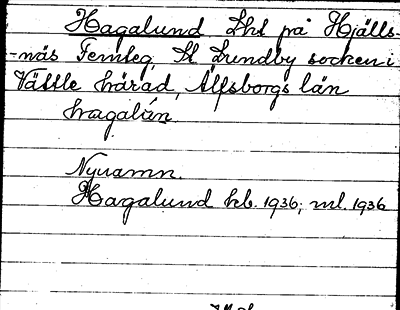 Hagalund Lht på Hjälls-
-näs Femteg, St Lundby socken i
Vättle härad, Älfsborgs län
hagalún
Nynamn.
Hagalund kb. 1936; ml. 1936